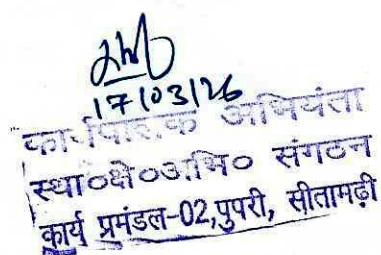 17/03/26
कार्यपालक अभियंता
स्था०क्षे०अभि० संगठन
कार्य प्रमंडल-02,पुपरी, सीतामढ़ी